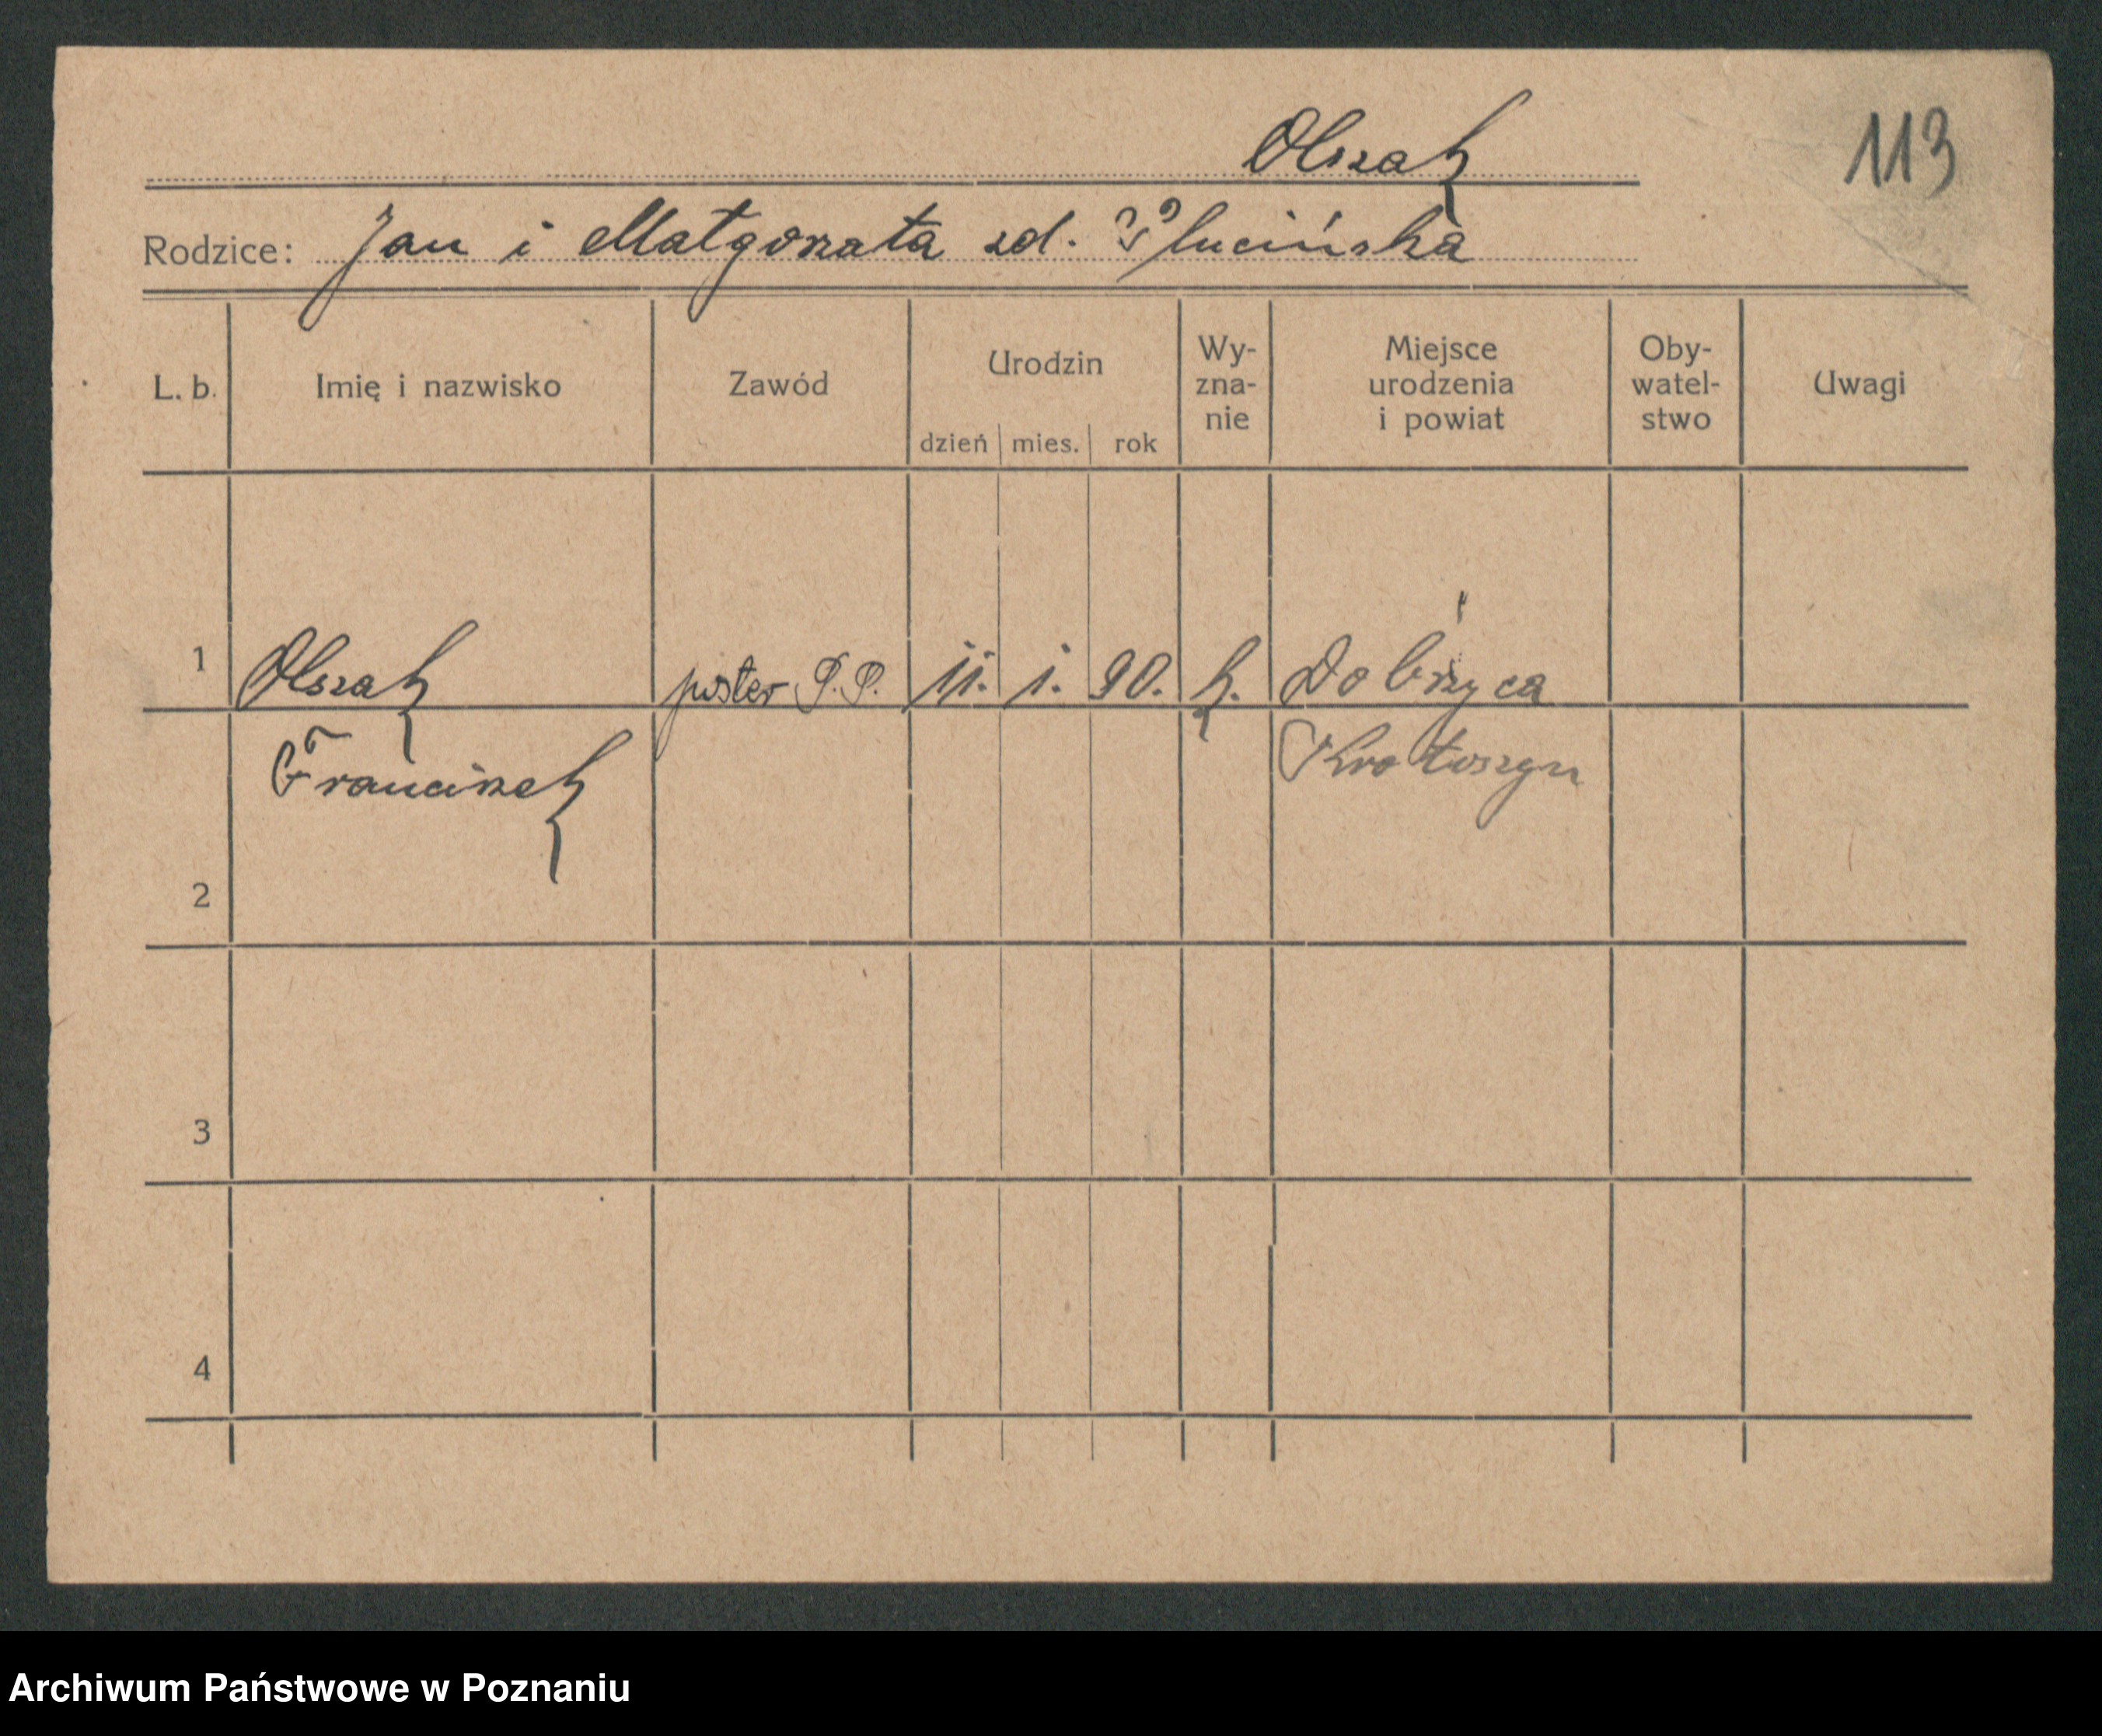 Olszak
113
Rodzice: Jan i Małgorzata zd. Plucińska
L. b. Imię i nazwisko Zawód Urodzin dzień mies. rok Wy-zna-nie Miejsce urodzenia i powiat Oby-watel-stwo Uwagi
1 Olszak poster P.P. 11. 1. 90. k. Dobrzyca
Franciszek Krotoszyn
2
3
4
Archiwum Państwowe w Poznaniu